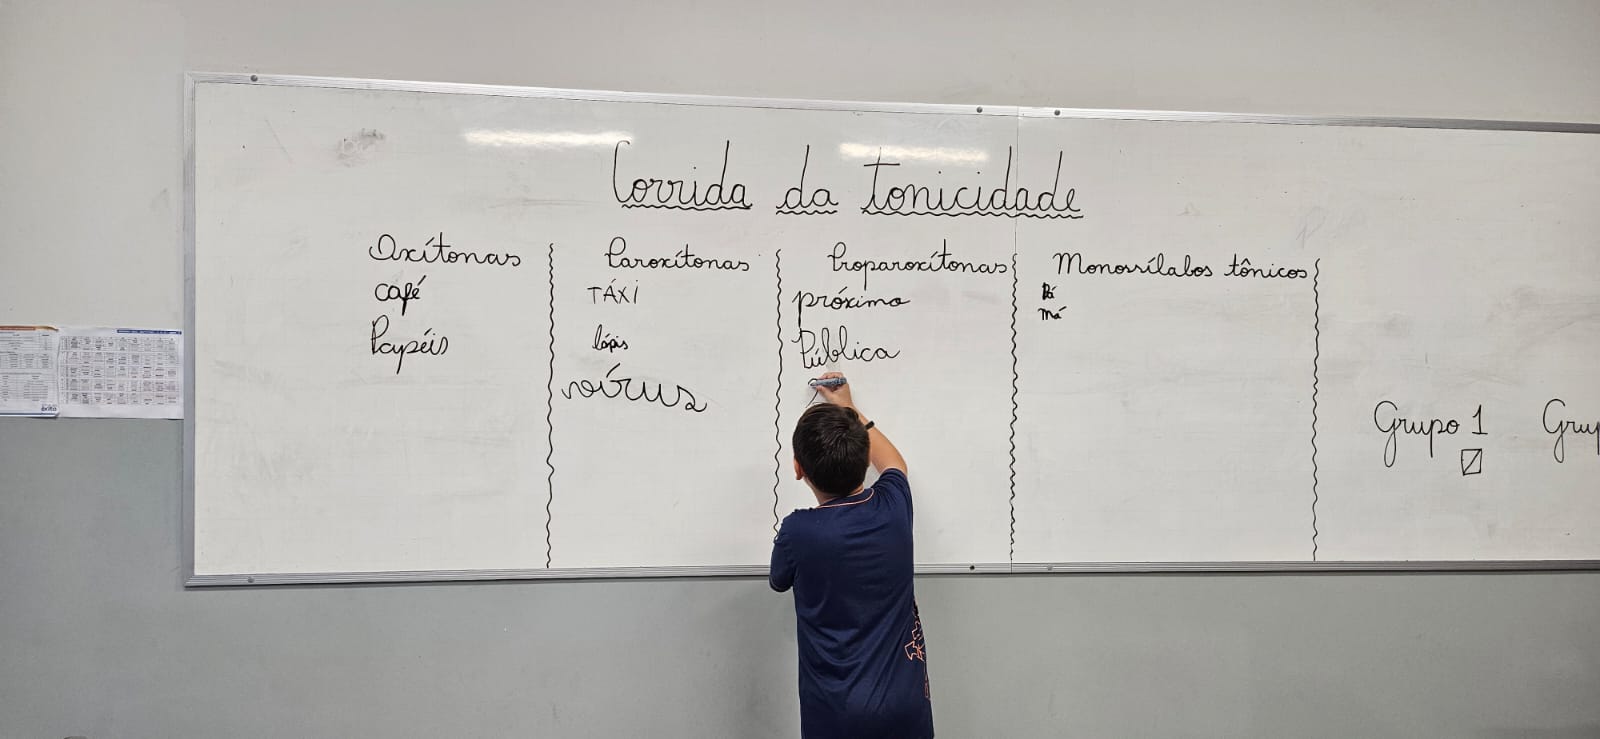 Corrida da tonicidade
Oxítonas
café
Papéis
Paroxítonas
TÁXi
lápis
vírus
Proparoxítonas
próximo
Pública
Monossílabos tônicos
má
Grupo 1